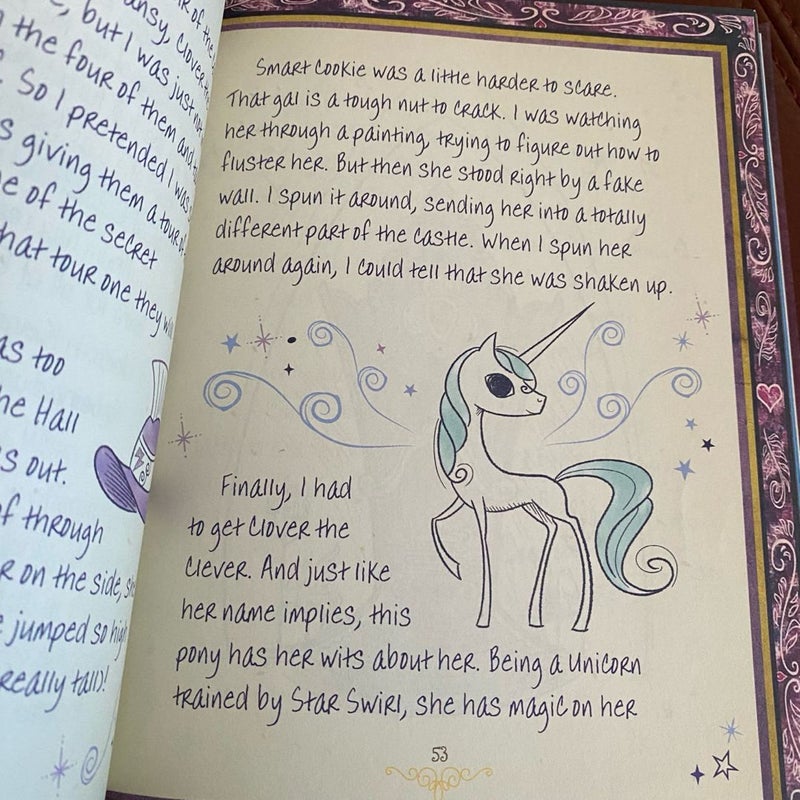 of the
ansy, Clover
, but I was just not
the four of them and
. So I pretended I was
s giving them a tour of
e of the secret
hat tour one they
as too
he Hall
s out.
f through
r on the side, s
e jumped so high
really tall)!
Smart Cookie was a little harder to scare.
That gal is a tough nut to crack. I was watching
her through a painting, trying to figure out how to
fluster her. But then she stood right by a fake
wall. I spun it around, sending her into a totally
different part of the castle. When I spun her
around again, I could tell that she was shaken up.
Finally, I had
to get Clover the
Clever. And just like
her name implies, this
pony has her wits about her. Being a Unicorn
trained by Star Swirl, she has magic on her
53